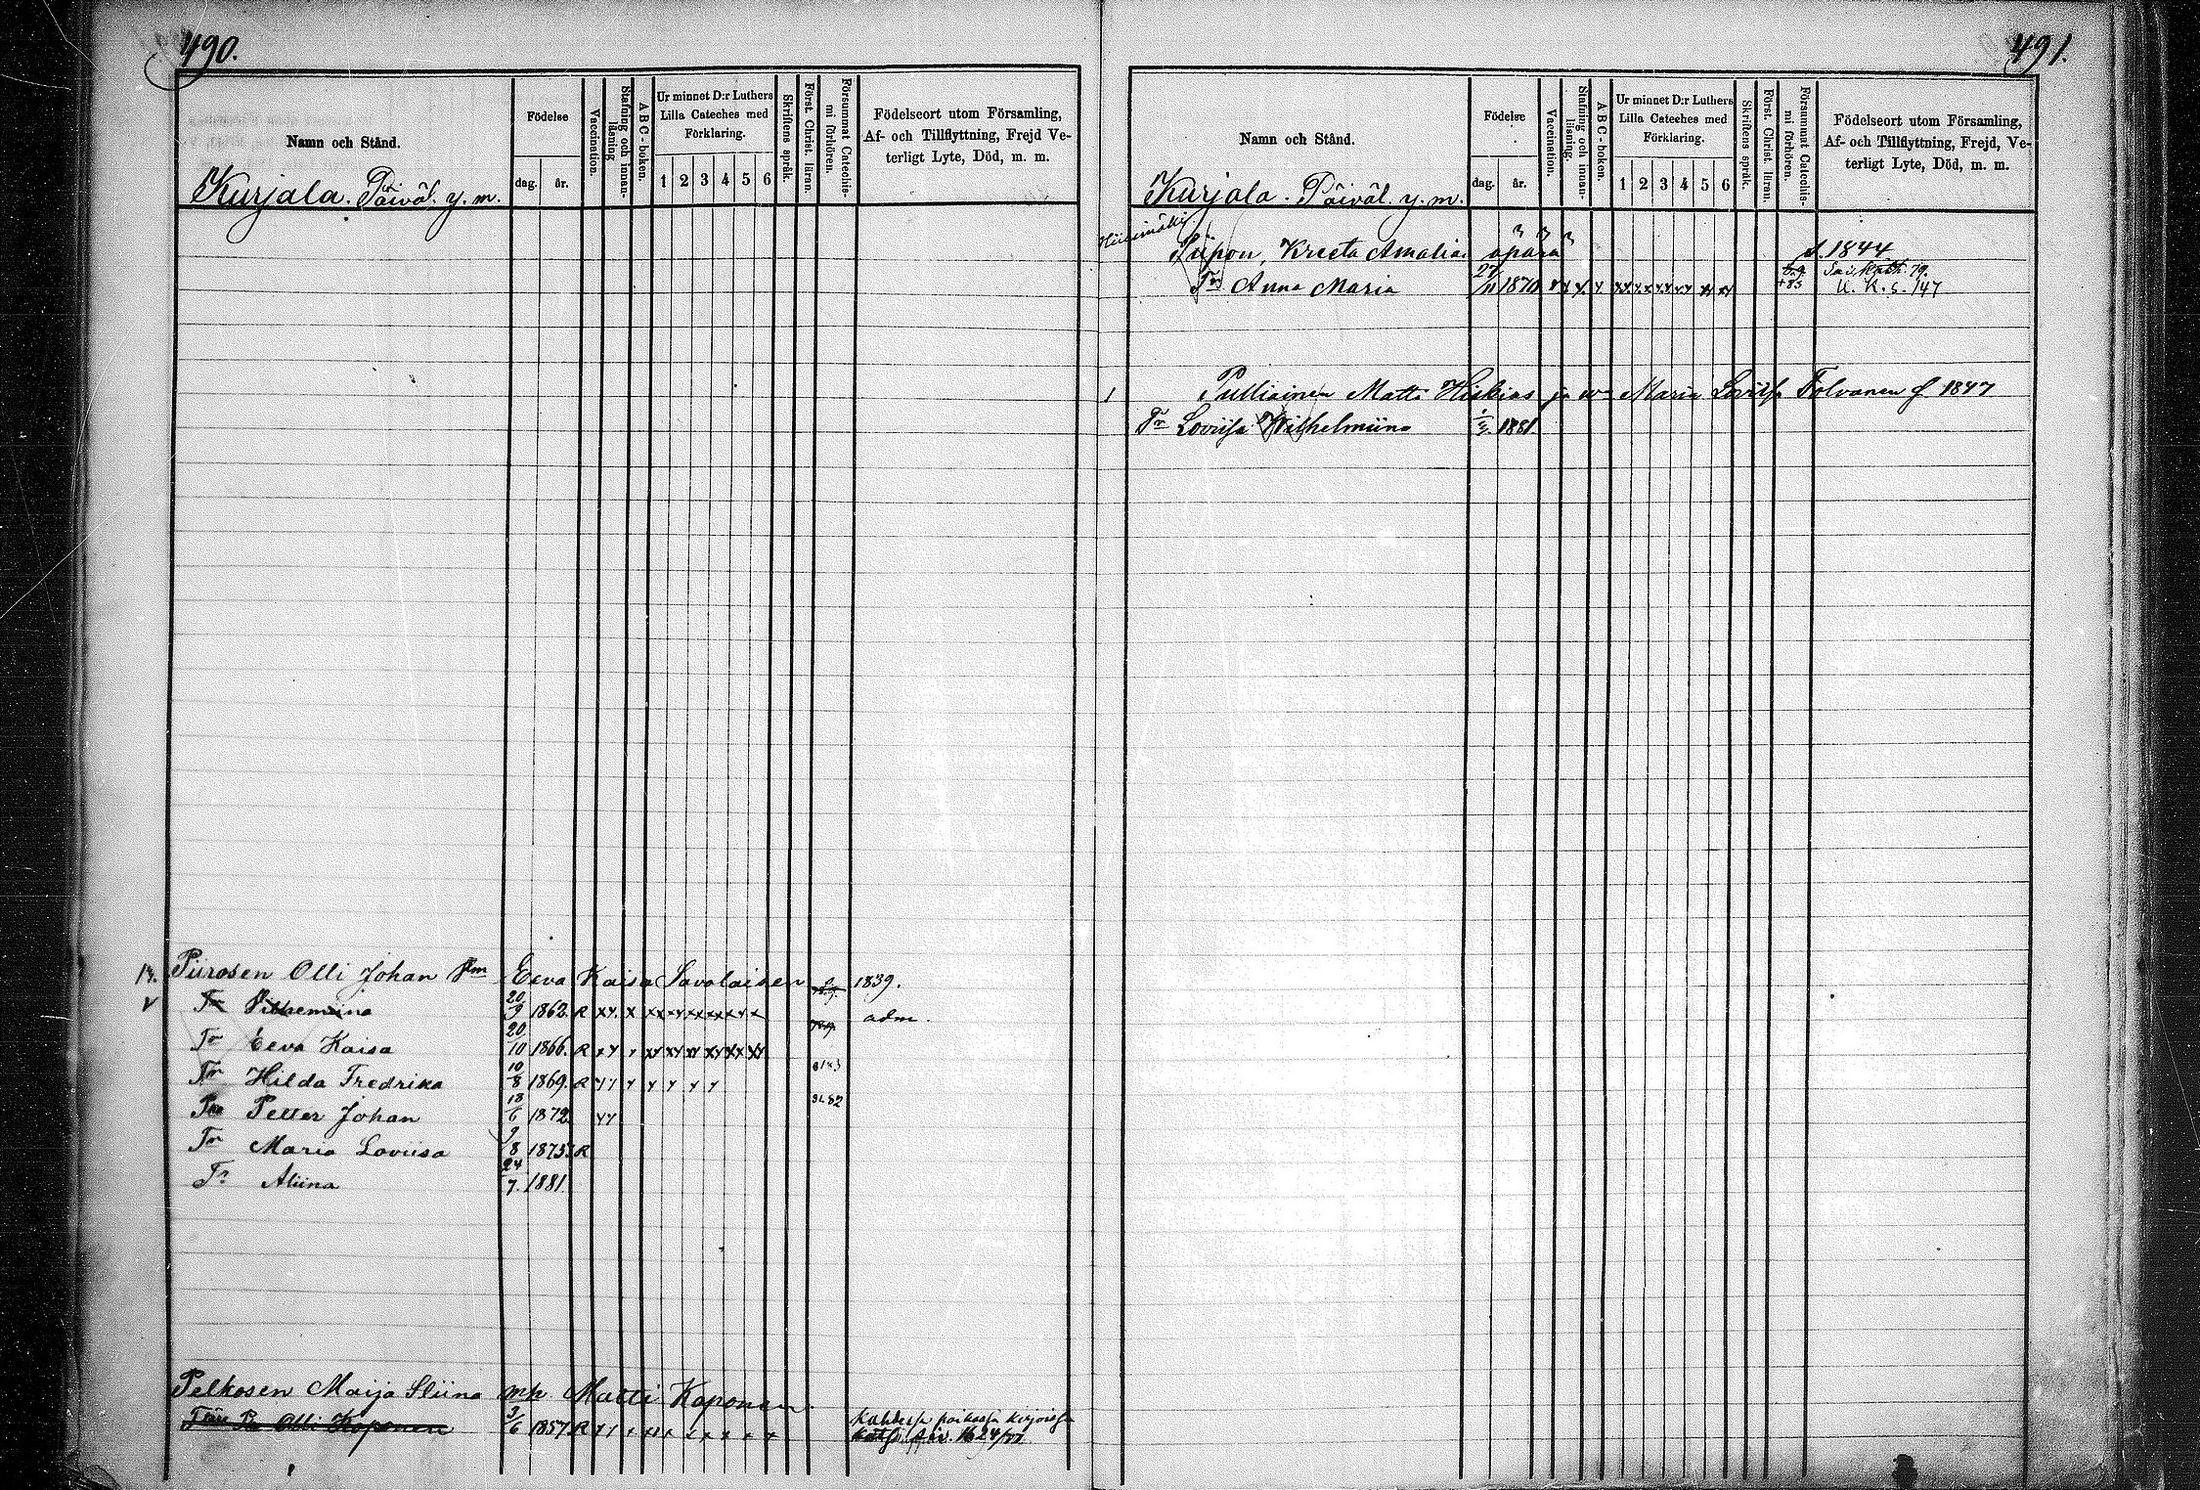 490.
Namn och Stånd.
Födelse
dag.
år.
Vaccination.
Stafning och innan-läsning
ABC-boken.
Ur minnet D:r Luthers Lilla Cateches med Förklaring.
1 2 3 4 5 6
Skriftens språk.
Först. Christ. läran.
Försummat Catechismi förhören.
Födelseort utom Församling,
Af- och Tillflyttning, Frejd Ve-
terligt Lyte, Död, m. m.
Kurjala. Päiväl. y. m.
14. Piirosen Olli Johan Eeva Kaisa Savolaisen 1839.
V Tr Vilhemiina 20/9 1862. R adm.
Tr Eeva Kaisa 20/10 1866. R
Tr Hilda Fredrika 10/8 1869. R
Petter Johan 18/6 1872
Tr Maria Loviisa 9/8 1875. R
Tr Aliina 24/7. 1881.
Pelkosen Maija Stiina Matti Koponen
Olli Koponen 3/6 1857. R Kahdessa paikassa
491.
Namn och Stånd.
Födelse
dag.
år.
Vaccination.
Stafning och innan-läsning.
ABC-boken.
Ur minnet D:r Luthers Lilla Cateches med Förklaring.
1 2 3 4 5 6
Skriftens språk.
Först. Christ. läran.
Försummat Catechismi förhören.
Födelseort utom Församling,
Af- och Tillflyttning, Frejd, Ve-
terligt Lyte, Död, m. m.
Kurjala. Päiväl. y. m.
Kreeta Amalia apara 1844
Tr Anna Maria 27/11 1870 U. K. s. 147
1 Pulliainen Matti Hiskias ja Maria Lovisa Tolvanen 1847
Tr Loviisa Wilhelmiina 1881